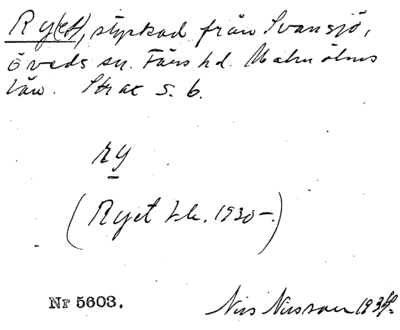 Ry(et), styckad från Svansjö,
Öveds sn. Färs hd. Malmöhus
län. Strax S. 6.
ry
(Ryet tlr. 1930-.)
Nr 5603.
Nils Nilsson 1934